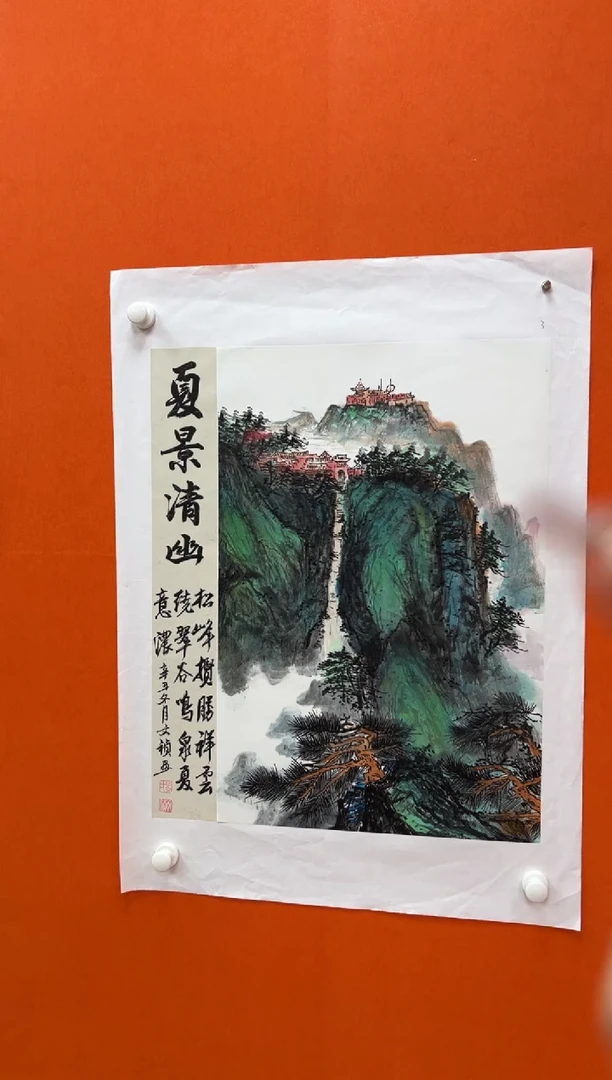 夏景清幽
松峰攬勝祥雲
繞翠谷鳴泉夏
意濃辛丑冬月文禎画